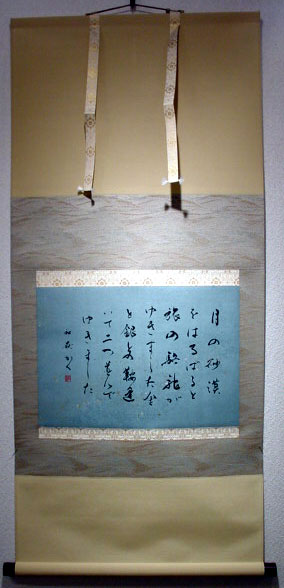 月の砂漠
をはるばると
旅の駱駝が
ゆきました金
と銀との鞍置
いて二つならんで
ゆきました